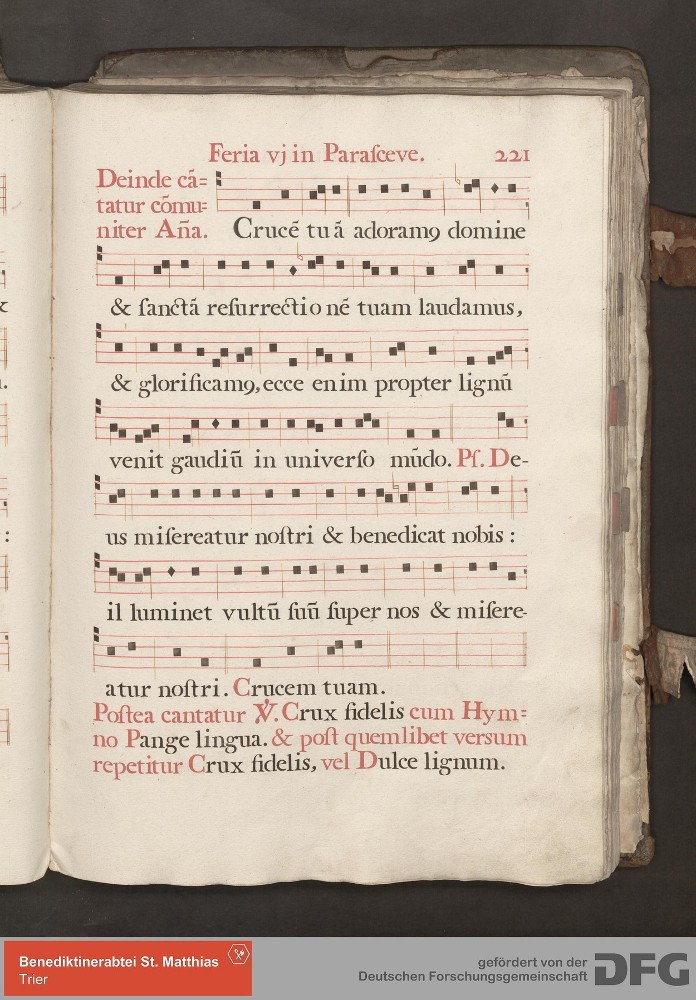 Feria vj in Paraſceve. 221
Deinde cā=
tatur cōmu=
niter Aña. Crucē tuā adoramꝯ domine
& ſanctā reſurrectionē tuam laudamus,
& glorificamꝯ, ecce enim propter lignū
venit gaudiū in univerſo mūdo. Pſ. De-
us miſereatur noſtri & benedicat nobis :
il luminet vultū ſuū ſuper nos & miſere-
atur noſtri. Crucem tuam.
Poſtea cantatur ℣. Crux fidelis cum Hym=
no Pange lingua. & poſt quemlibet versum
repetitur Crux fidelis, vel Dulce lignum.
Benediktinerabtei St. Matthias
Trier
gefördert von der
Deutschen Forschungsgemeinschaft
DFG